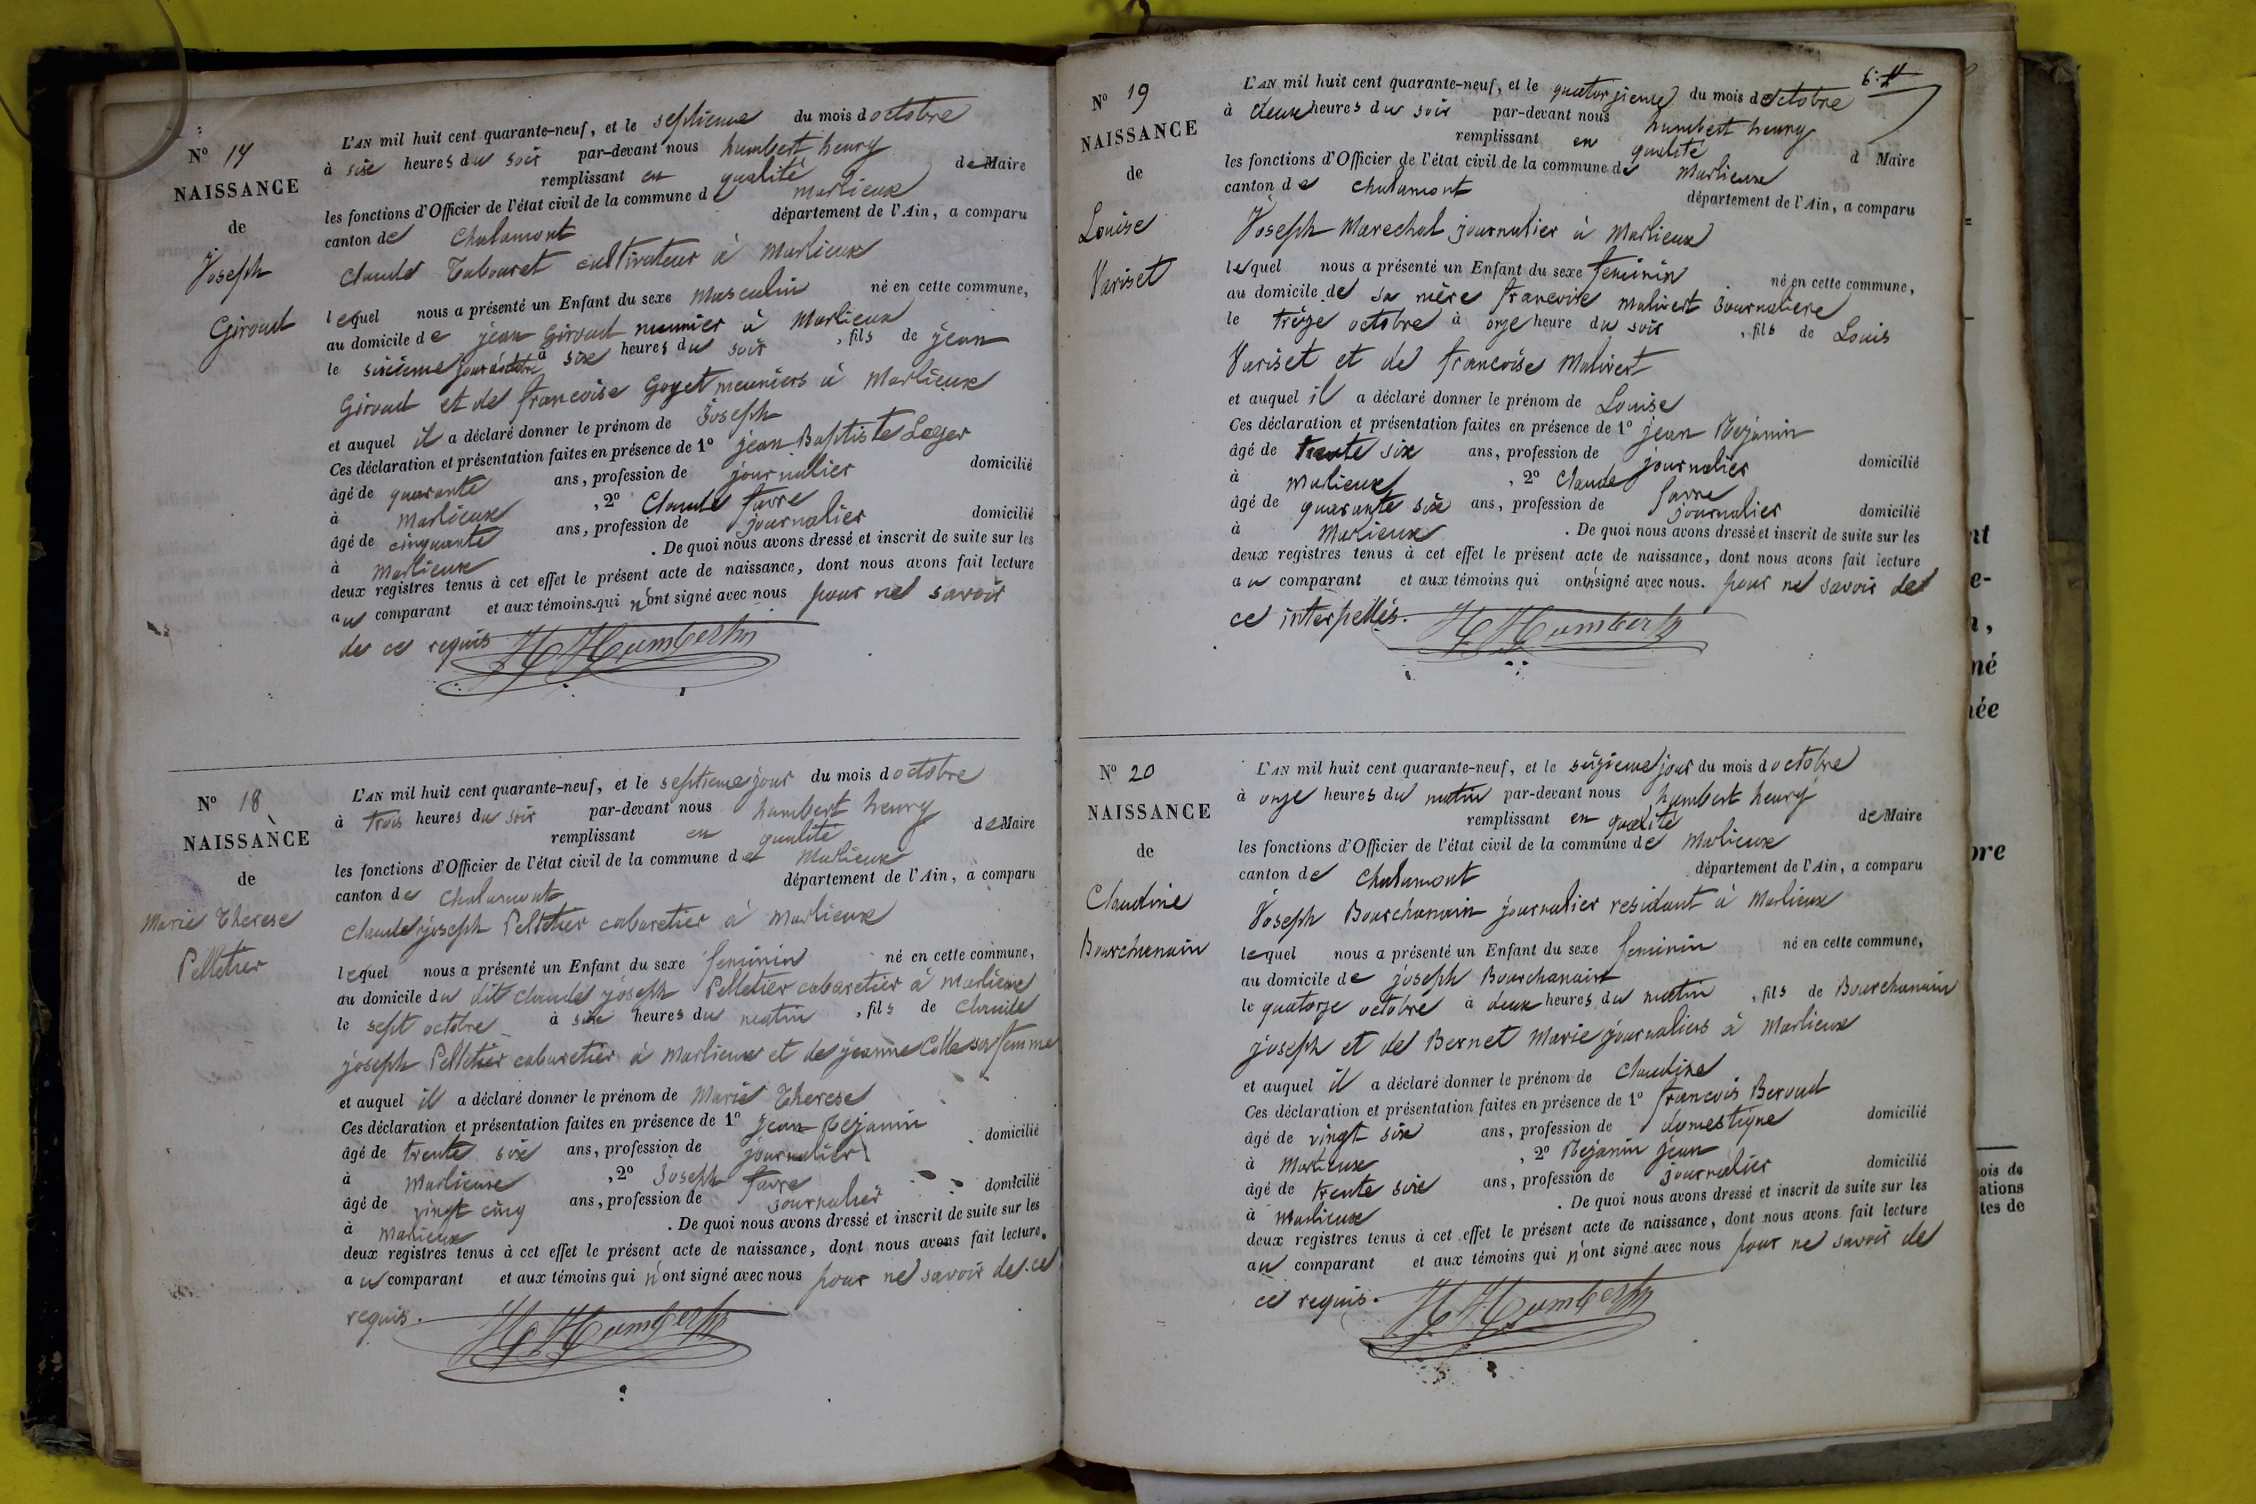 N° 17
NAISSANCE
de
Joseph
Giroud
L'AN mil huit cent quarante-neuf, et le septieme du mois d octobre
à sixe heures du soir par-devant nous humbert henry
remplissant en qualité de Maire
les fonctions d'Officier de l'état civil de la commune de Marlieux
canton de Chalamont département de l'Ain, a comparu
Claude Tabouret cultivateur à Marlieux
lequel nous a présenté un Enfant du sexe Masculin né en cette commune,
au domicile de jean Giroud meunier à Marlieux
le sixieme jour doctobre à sixe heures du soir , fils de jean
Giroud et de francoise Goyet meuniers à Marlieux
et auquel il a déclaré donner le prénom de Joseph
Ces déclaration et présentation faites en présence de 1° jean Baptiste Leger
âgé de quarante ans, profession de journalier domicilié
à Marlieux , 2° Claude favre
âgé de cinquante ans, profession de journalier domicilié
à Marlieux . De quoi nous avons dressé et inscrit de suite sur les
deux registres tenus à cet effet le présent acte de naissance, dont nous avons fait lecture
au comparant et aux témoins qui n'ont signé avec nous pour ne savoir
de ce requis H Humbert
N° 18
NAISSANCE
de
Marie Therese
Pelletier
L'AN mil huit cent quarante-neuf, et le septieme jour du mois d octobre
à trois heures du soir par-devant nous humbert henry
remplissant en qualité de Maire
les fonctions d'Officier de l'état civil de la commune de Marlieux
canton de Chalamont département de l'Ain, a comparu
Claude joseph Pelletier cabaretier à Marlieux
lequel nous a présenté un Enfant du sexe feminin né en cette commune,
au domicile du dit Claude joseph Pelletier cabaretier à Marlieux
le sept octobre à sixe heures du matin , fils de Claude
joseph Pelletier cabaretier à Marlieux et de jeanne Colle sa femme
et auquel il a déclaré donner le prénom de Marie Therese
Ces déclaration et présentation faites en présence de 1° Jean Mejanin
âgé de trente six ans, profession de journalier domicilié
à Marlieux , 2° Joseph favre
âgé de vingt cinq ans, profession de journalier domicilié
à Marlieux . De quoi nous avons dressé et inscrit de suite sur les
deux registres tenus à cet effet le présent acte de naissance, dont nous avons fait lecture
au comparant et aux témoins qui n'ont signé avec nous pour ne savoir de ce
requis. H Humbert
N° 19
NAISSANCE
de
Louise
Variset
L'AN mil huit cent quarante-neuf, et le quatorzieme du mois doctobre
à deux heures du soir par-devant nous humbert henry
remplissant en qualité d Maire
les fonctions d'Officier de l'état civil de la commune de Marlieux
canton de Chalamont département de l'Ain, a comparu
Joseph Marechal journalier à Marlieux
lequel nous a présenté un Enfant du sexe feminin né en cette commune,
au domicile de sa mère francoise Malivert Journaliere
le treize octobre à onze heure du soir , fils de Louis
Variset et de francoise Malivert
et auquel il a déclaré donner le prénom de Louise
Ces déclaration et présentation faites en présence de 1° jean Mejanin
âgé de trente six ans, profession de journalier domicilié
à Malieux , 2° Claude favre
âgé de quarante six ans, profession de journalier domicilié
à Marlieux . De quoi nous avons dressé et inscrit de suite sur les
deux registres tenus à cet effet le présent acte de naissance, dont nous avons fait lecture
au comparant et aux témoins qui ont n' signé avec nous. pour ne savoir de
ce interpellés. H Humbert
N° 20
NAISSANCE
de
Claudine
Bourchanain
L'AN mil huit cent quarante-neuf, et le seizieme jour du mois d octobre
à onze heures du matin par-devant nous humbert henry
remplissant en qualité de Maire
les fonctions d'Officier de l'état civil de la commune de Marlieux
canton de Chalamont département de l'Ain, a comparu
Joseph Bourchanain journalier residant à Marlieux
lequel nous a présenté un Enfant du sexe feminin né en cette commune,
au domicile de joseph Bourchanain
le quatorze octobre à deux heures du matin , fils de Bourchanain
joseph et de Bernet Marie journaliers à Marlieux
et auquel il a déclaré donner le prénom de Claudine
Ces déclaration et présentation faites en présence de 1° francois Beroud
âgé de vingt six ans, profession de domestique domicilié
à Marlieux , 2° Mejanin jean
âgé de trente sixe ans, profession de journalier domicilié
à Marlieux . De quoi nous avons dressé et inscrit de suite sur les
deux registres tenus à cet effet le présent acte de naissance, dont nous avons fait lecture
au comparant et aux témoins qui n'ont signé avec nous pour ne savoir de
ce requis. H Humbert